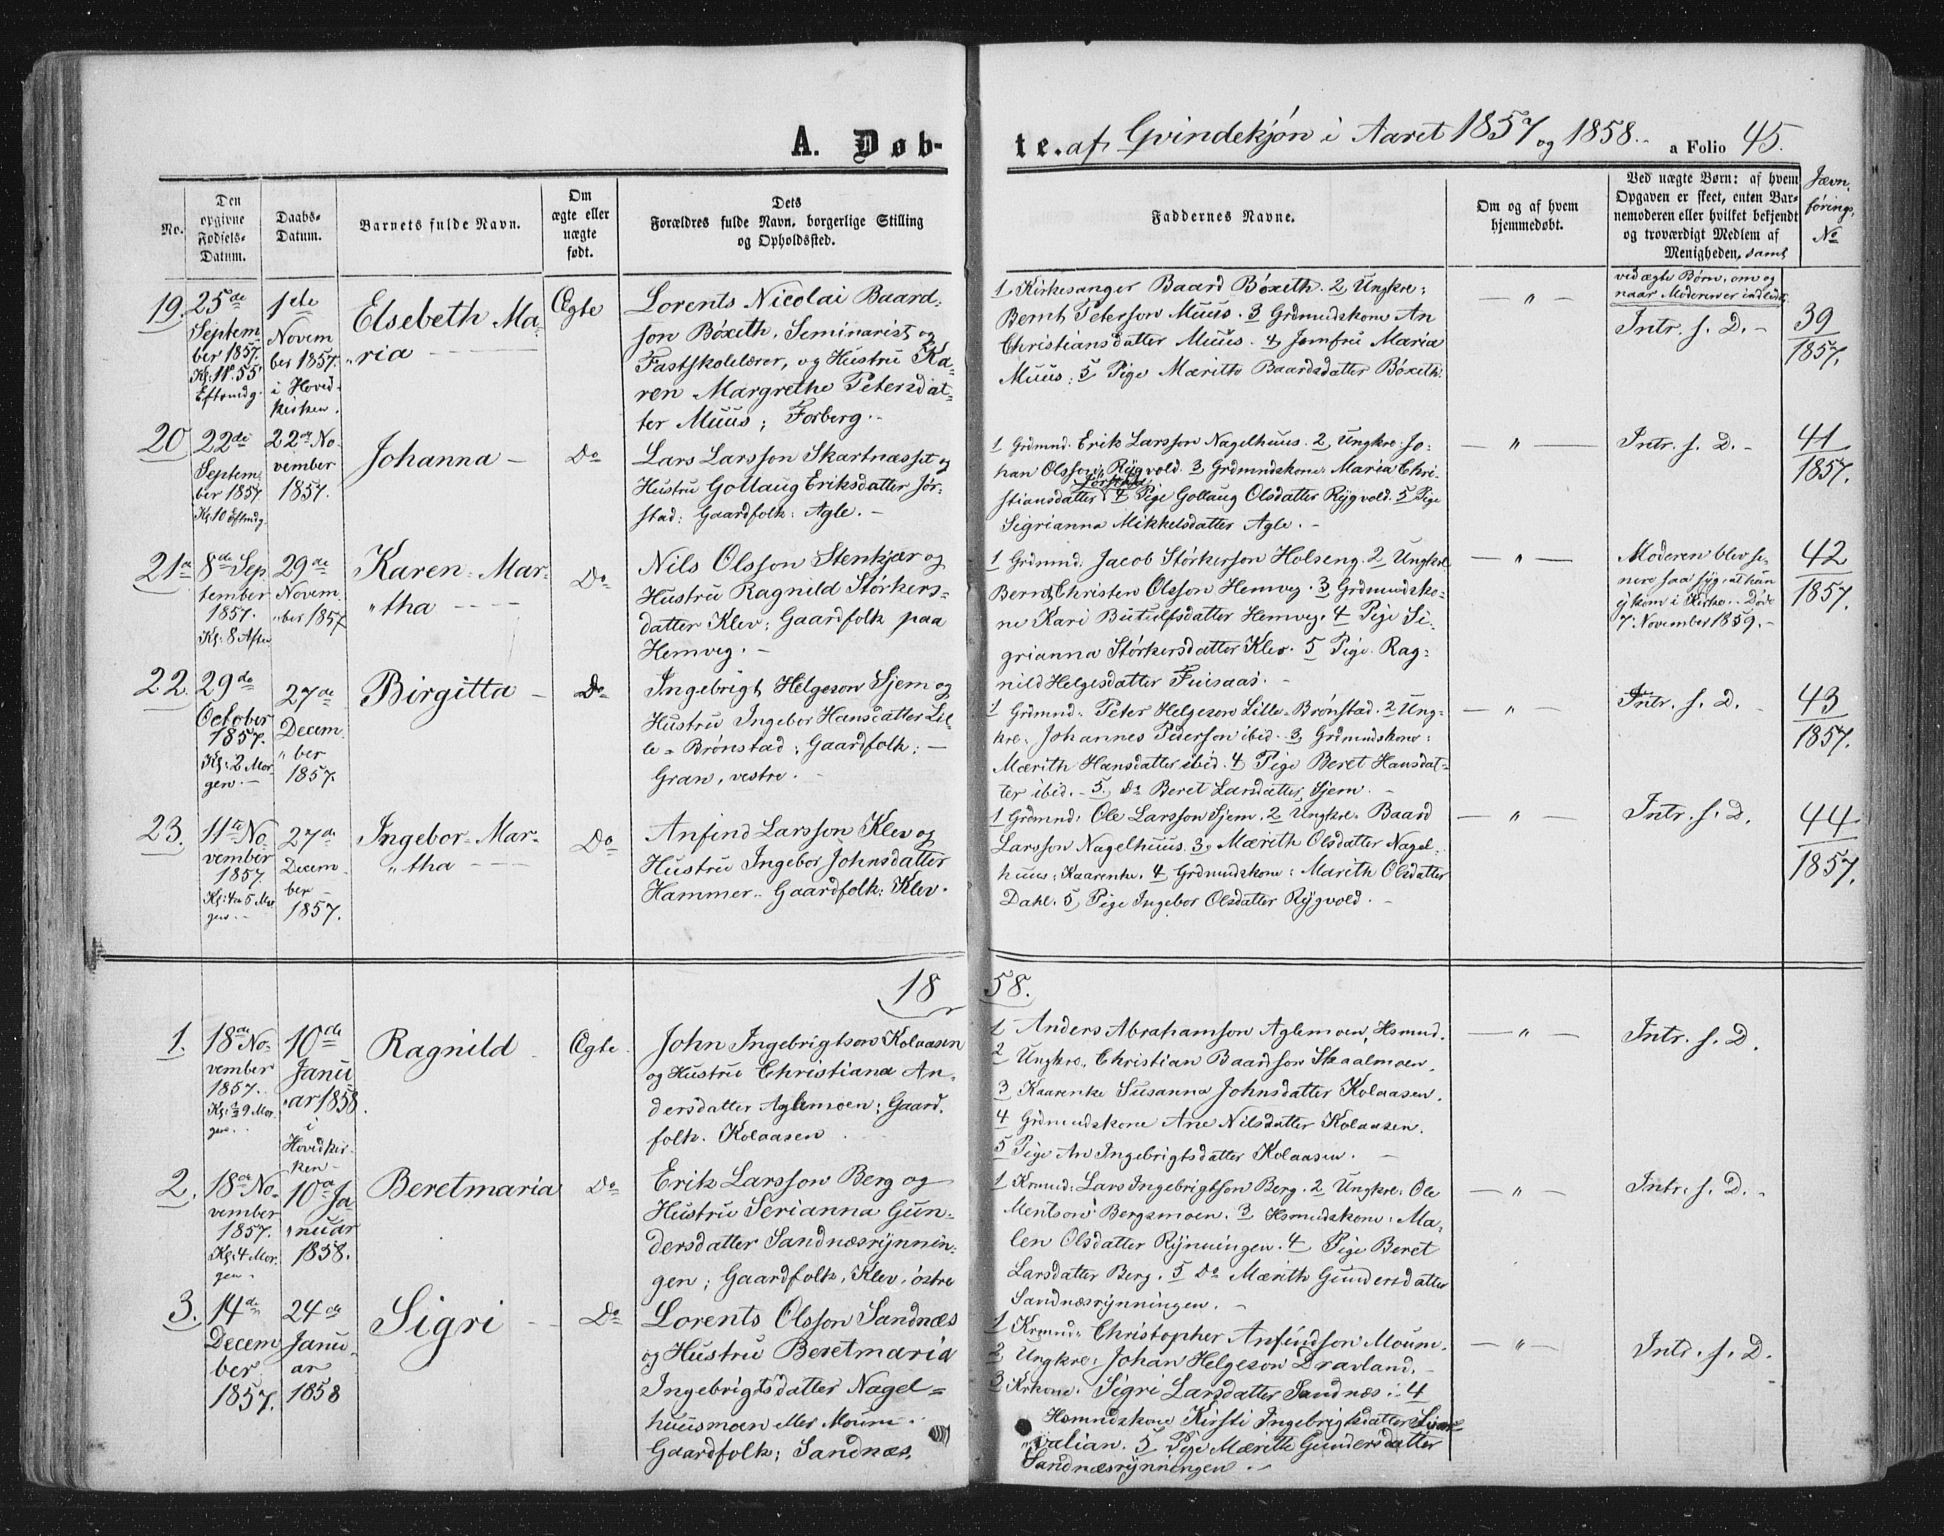 A. Døb-
te. af Qvindekjøn i Aaret 1857 og 1858. a Folio 45.
No.
Den opgivne Fødsels-Datum.
Daabs-Datum.
Barnets fulde Navn.
Om ægte eller uægte født.
Dets Forældres fulde Navn, borgerlige Stilling og Opholdssted.
Faddernes Navne.
Om og af hvem hjemmedøbt.
Ved uægte Børn: af hvem Opgaven er skeet, enten Barnemoderen eller hvilket bekjendt og troværdigt Medlem af Menigheden, samt
ved ægte Børn, om og naar Moderen er indledet
Jævnførings No
19.
25de
Septem
ber 1857.
Kl: 11.55'
Eftmdg.
1ste
Novem
ber 1857.
i Hoved-
kirken.
Elsebeth Ma-
ria
Ægte
Lorents Nicolai Baard-
son Böxeth, Seminarist og
Fastskolelærer, og Hustru Ka-
ren Margrethe Petersdat-
ter Muus; Forberg.
1, Kirkesanger Baard Böxeth. 2 Ungkre:
Bernt Peterson Muus. 3 Grdmndskone An
Christiansdatter Muus. 4 Jomfru Maria
Muus; 5 Pige Mærith Baardsdatter Böxeth.
— " —
Intr. s. D. -
39
1857.
20
22de
Septem
ber 1857.
Kl 10 Eftmdg.
22de No-
vember
1857.
Johanna -
Do
Lars Larsson Skartnæsset og
Hustru Gollaug Eriksdatter Jör-
stad: Gaardfolk: Agle. -
1 Grdmnd. Erik Larsson Nagelhuus. 2, Ungkre: Jo-
han Olsson Rygvold. 3 Grdmndskone: Maria Chri-
stiansdatter Jörstad, 4 Pige Gollaug Olsdatter Rygvold. 5 Pige
Sigrianna Mikkelsdatter Agle. -
— " —
Intr. s. D. -
41
1857.
21
8de Sep
tember
1857.
Kl: 8 Aften
29de
Novem-
ber 1857
Karen-Mar-
tha
Do
Nils Olsson Stenkjær og
Hustru Ragnild Störkers-
datter Klev: Gaardfolk paa
Hemveg. -
1 Grdmnd. Jacob Störkerson Holseng. 2 Ungkre
Bernt Christen Olsson Hemveg. 3 Grdmndsko-
ne Kari Butulfsdatter Hemveg. 4 Pige Si-
grianna Störkersdatter Klev. 5 Pige Rag-
nild Helgesdatter
— " —
Moderen blev se-
nere saa syg, at hun
ej kom i Kirke. Döde
7. November 1859. -
42
1857.
22.
29de
October
1857.
Kl: 2 Mor-
gen. -
27de
Decem-
ber
1857.
Birgitta -
Do
Ingebrigt Helgeson Sjem og
Hustru Ingebor Hansdatter Lil-
le-Brönstad; Gaardfolk: -
Gran, vestre.
1 Grdmnd: Peter Helgeson Lille-Brönstad. 2 Ung-
kre. Johannes Pederson ibid. 3 Grdmndskone:
Mærith Hansdatter ibid. 4 Pige Beret Hansdat-
ter ibid. - 5. Do Beret Larsdatter Sjem. -
— " —
Intr. s. D. -
43
1857.
23.
11te No-
vember
1857
Kl: 4 a 5 Mor
gen. -
27de
Decem-
ber
1857.
Ingebor-Mar-
tha
Do
Anfind Larsson Klev og
Hustru Ingebor Johnsdatter
Hammer. Gaardfolk: Klev.
1 Grdmnd: Ole Larsson Sjem. 2 Ungkre. Baard
Larsson Nagelhuus. 3, Mærith Olsdatter Nagel-
huus: Kaarenke. 4 Grdmndskone: Marith Olsdatter
Dahl. 5, Pige Ingebor Olsdatter Rygvold. -
— " —
Intr. s. D.
44
1857.
18 58.
1.
18de No-
vember
1857.
Kl: ½9 Mor-
gen.
10de
Janu
ar 1858.
i
Hovedkir-
ken -
Ragnild
Ægte
John Ingebrigtson Kolaasen
og Hustru Christiana An-
dersdatter Aglemoen; Gaard-
folk. Kolaasen
1 Anders Abrahamson Aglemoen, Hsmnd.
2 Ungkre. Christian Baardson Skaalmoen.
3 Kaarenke Susanna Johnsdatter Kolaasen.
4 Grdmndskone Ane Nilsdatter Kolaasen.
5 Pige An Ingebrigtsdatter Kolaasen. -
— " —
Intr. s. D.
2.
18de No-
vember
1857.
Kl: 4 Mor-
gen.
10de Ja-
nuar
1858.
Beretmaria
Do
Erik Larsson Berg og
Hustru Serianna Gun-
dersdatter Sandnæsrynnin-
gen; Gaardfolk, Klev, östre
1 Krmnd: Lars Ingebrigtson Berg. 2 Ungkre: Ole
Mentson Bergsmoen. 3 Hsmndskone: Ma-
len Olsdatter Rynningen. 4 Pige Beret
Larsdatter Berg. 5 Do Mærith Gundersdatter
Sandnæsrynningen. -
— " —
Intr. s. D. -
3.
14de
Decem
ber
1857.
24de
Janu-
ar
1858
Sigri
Do
Lorents Olsson Sandnæs
og Hustru Beretmaria
Ingebrigtsdatter Nagel-
huusmoen eller Moum
Gaardfolk; Sandnæs.
1 Krmnd: Christopher Anfindson Moum.
2 Ungkre: Johan Helgeson Dravland. -
3 Krkone. Sigri Larsdatter Sandnæs. 4
Hsmndskone Kirsti Ingebrigtsdatter
valian. 5 Pige Mærith Gundersdatter
Sandnæsrynningen -
— " —
Intr. s. D.